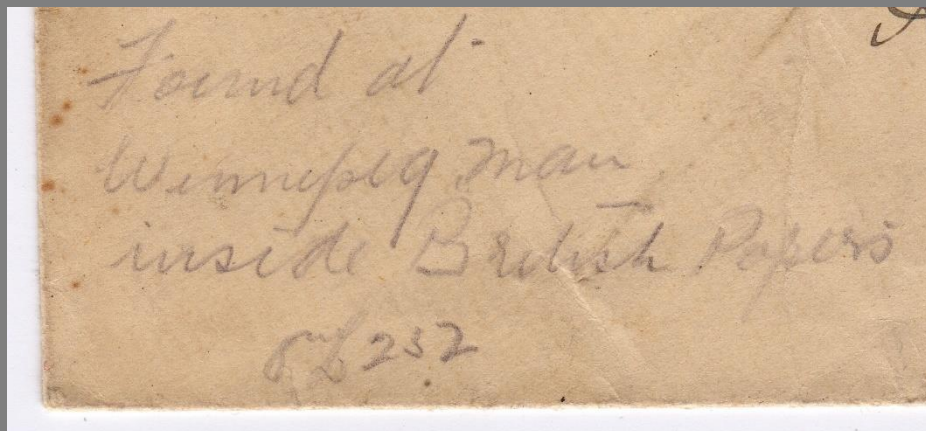 Found at
Winnipeg Man
inside British Papers
232